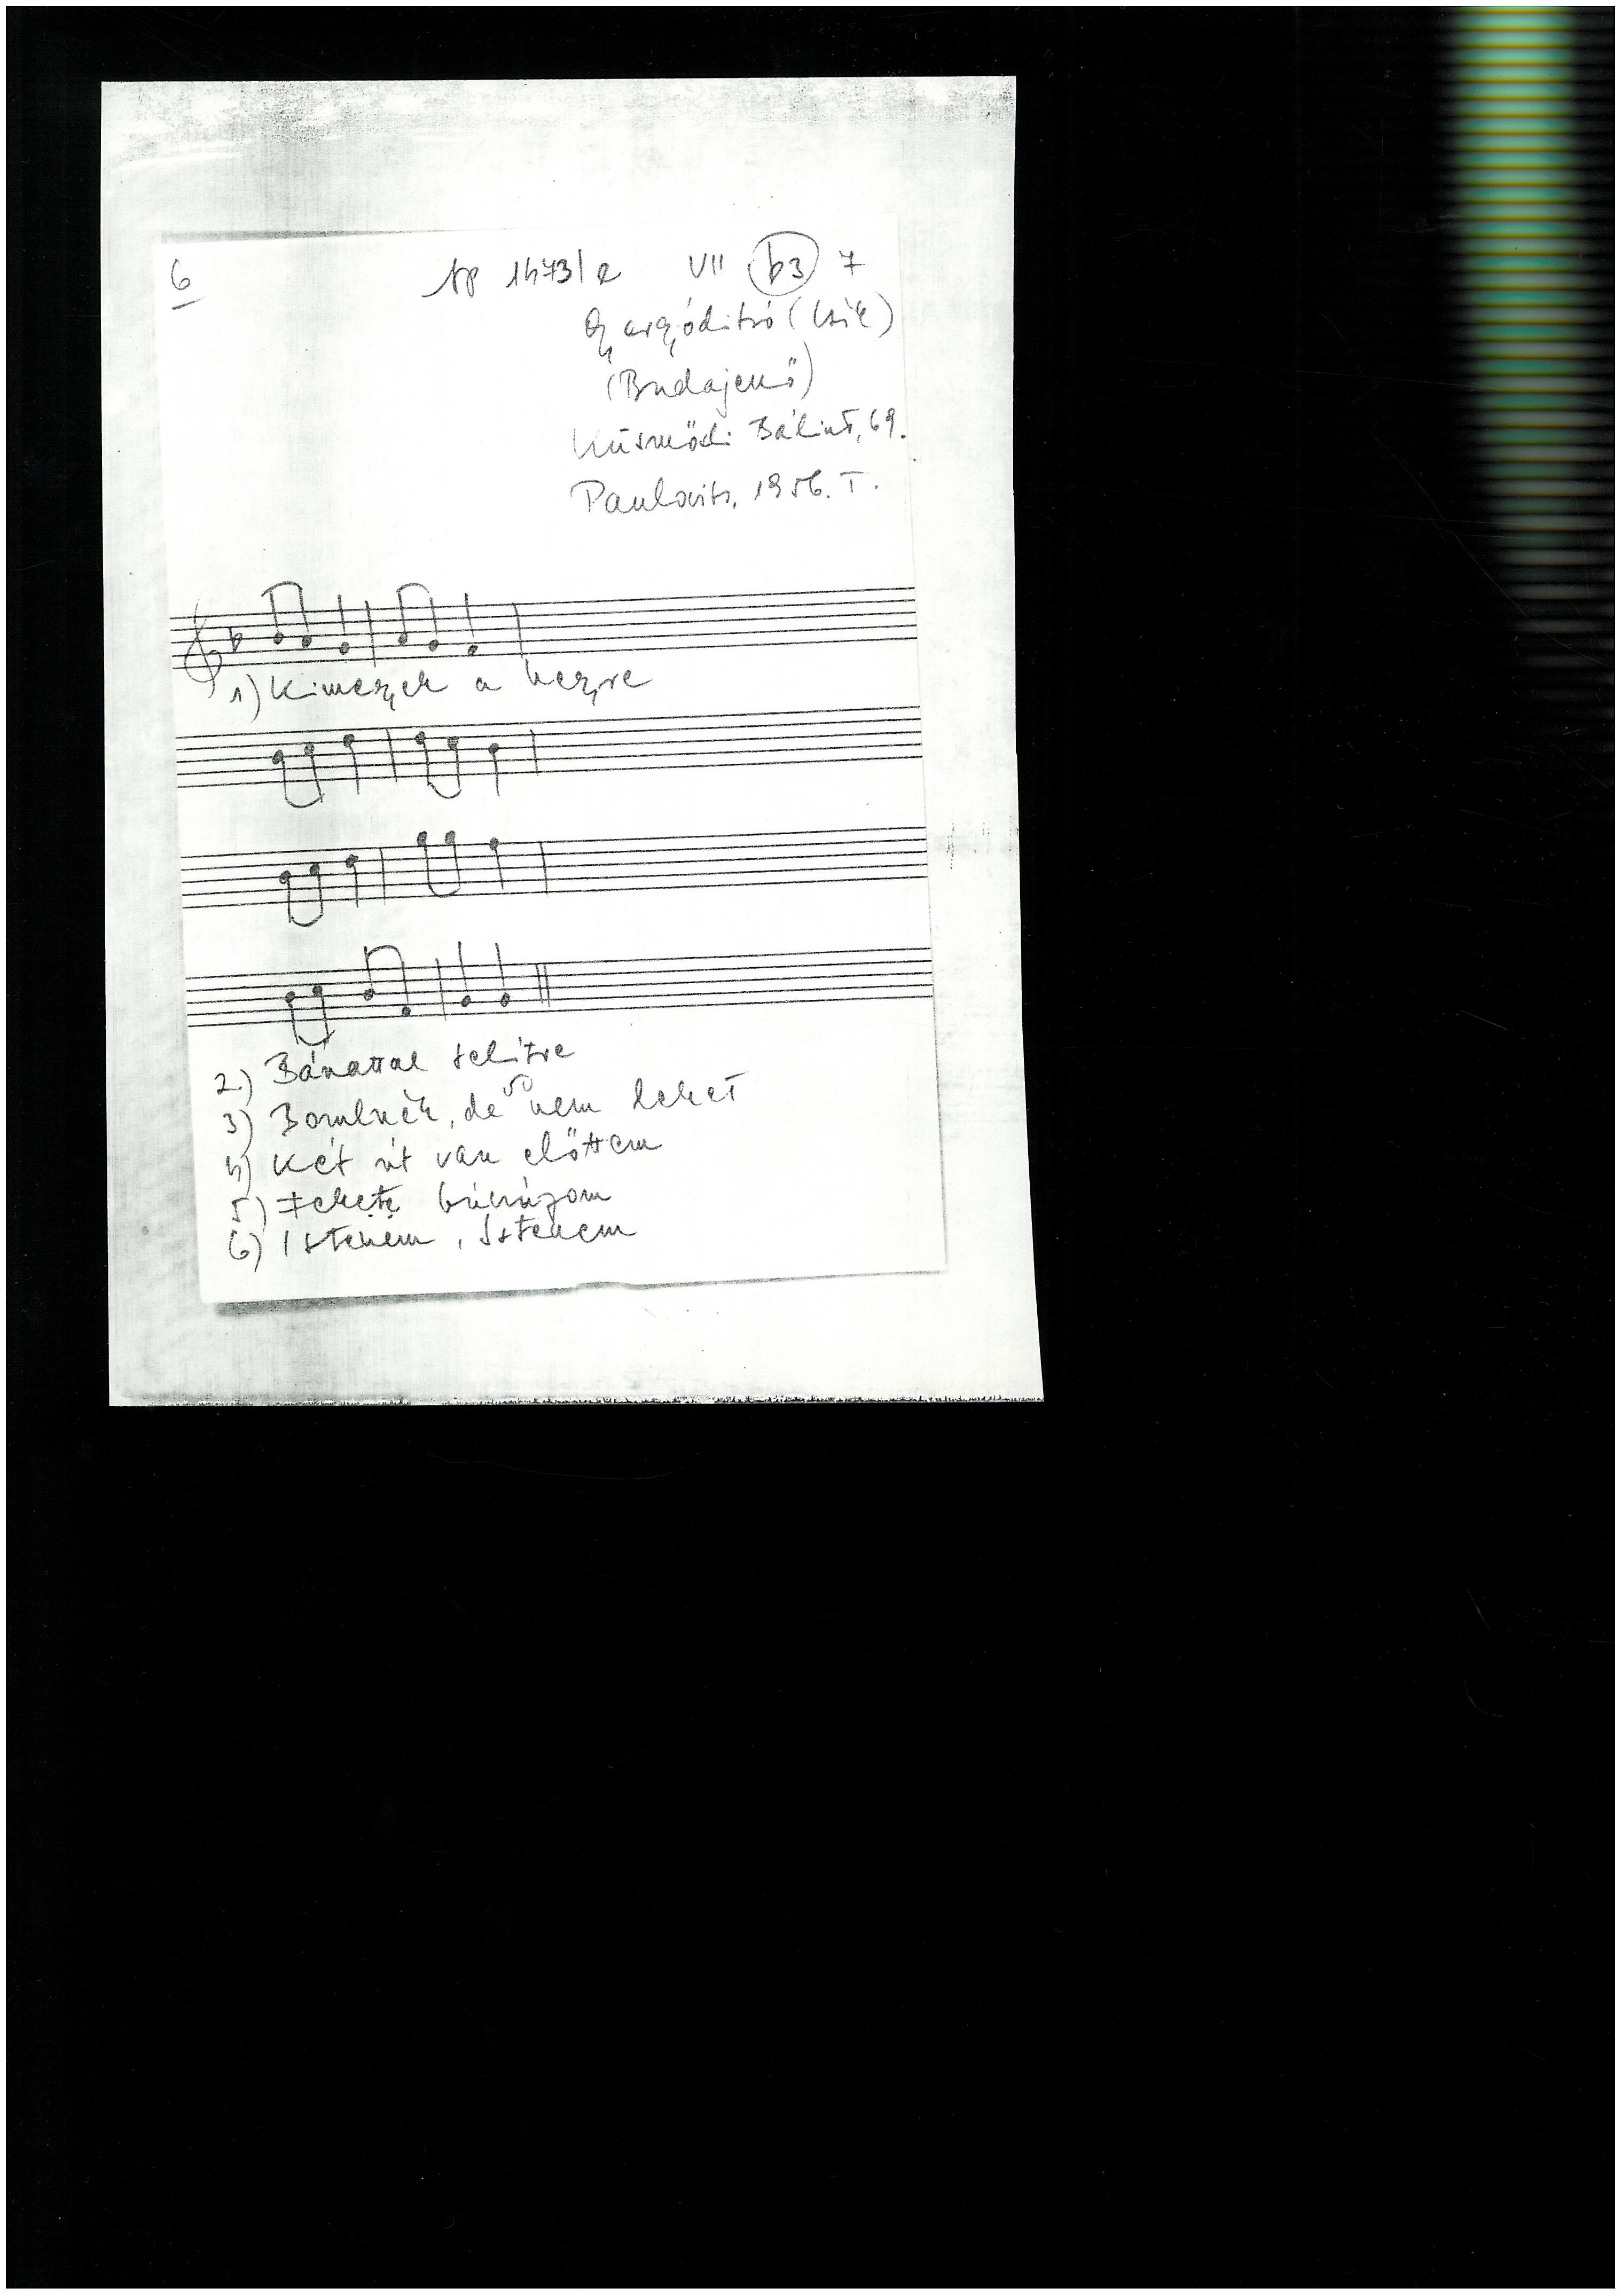 6 AP 1473/e VII b3 7
Gyergyóditró (Csík)
(Budajenő)
Küsmödi Bálint, 69.
1956. I.
1) Kimegyek a hegyre
2.) Bánattal telitve
3) de nem lehet
4) Két út van előttem
5) Fekete
6) Istenem, Istenem